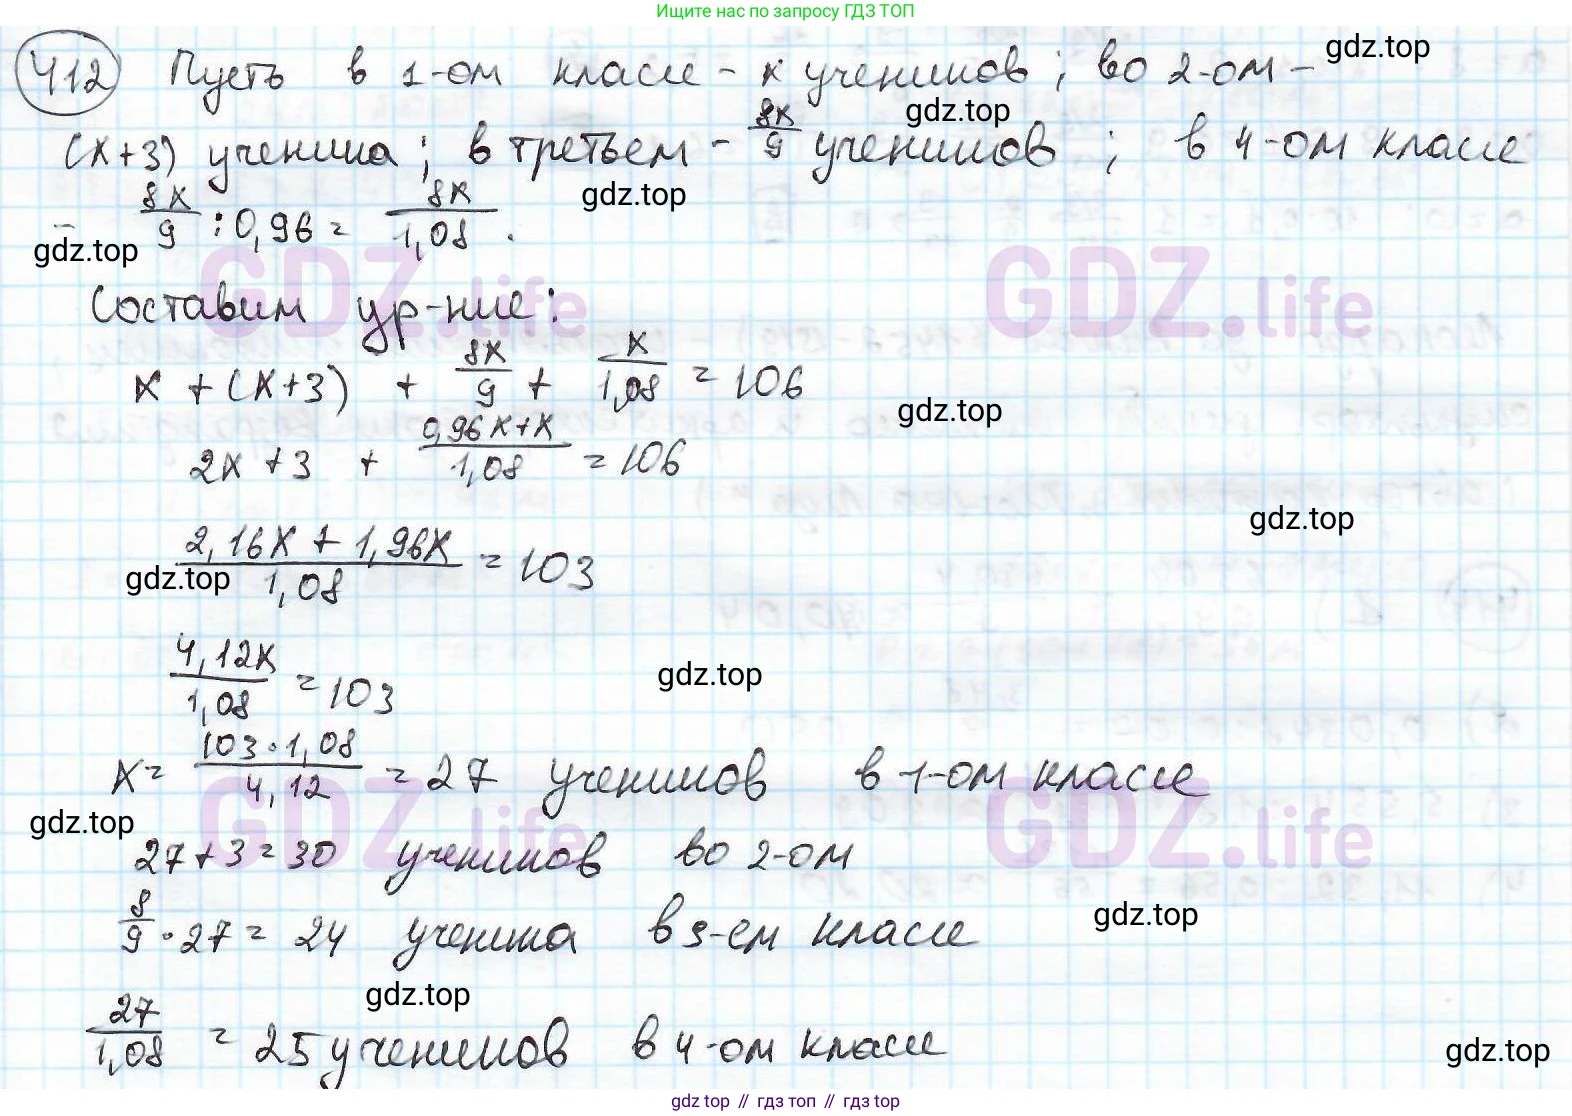 Ищите нас по запросу ГДЗ ТОП
412 Пусть в 1-ом классе - x учеников; во 2-ом -
gdz.top
gdz.top
(x+3) ученика; в третьем - 8x/9 учеников; в 4-ом классе
gdz.top
- 8x/9 : 0,96 = 8x/1,08.
gdz.top
GDZ.life
GDZ.life
Составим ур-ние:
x + (x+3) + 8x/9 + x/1,08 = 106
gdz.top
2x + 3 + 0,96x+x/1,08 = 106
gdz.top
2,16x + 1,96x/1,08 = 103
gdz.top
4,12x/1,08 = 103
gdz.top
x = 103·1,08/4,12 = 27 учеников в 1-ом классе
GDZ.life
GDZ.life
gdz.top
27+3=30 учеников во 2-ом
8/9·27 = 24 ученика в 3-ем классе
gdz.top
gdz.top
27/1,08 = 25 учеников в 4-ом классе
gdz.top
gdz top // гдз топ // gdz top